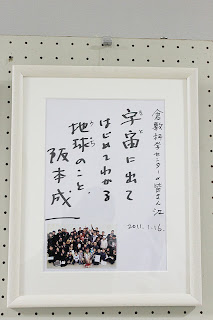 倉敷科学センターの皆さん江
2011.1.16.
そと
宇宙に出て
はじめてわかる
うち
地球のこと
阪本成一